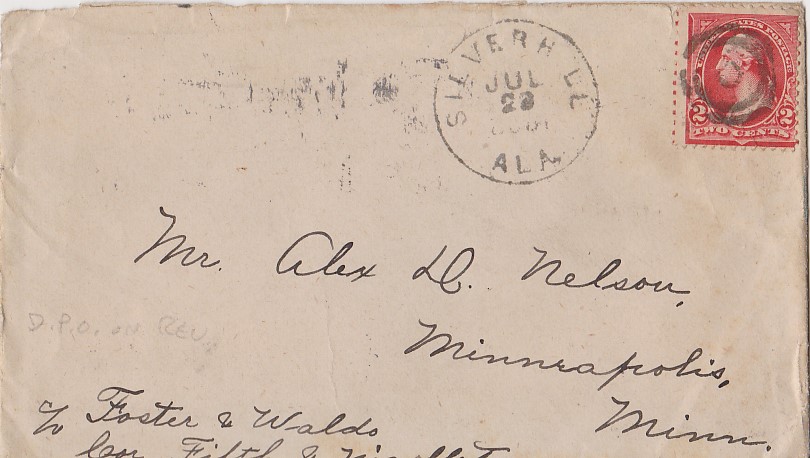 SILVERHILL
JUL
29
ALA.
UNITED STATES POSTAGE
2 2
TWO CENTS
Mr. Alex D. Nelson,
Minneapolis,
Minn.
D.P.O. on REV.
c/o Foster & Waldo
Cor Fifth & Nicollet